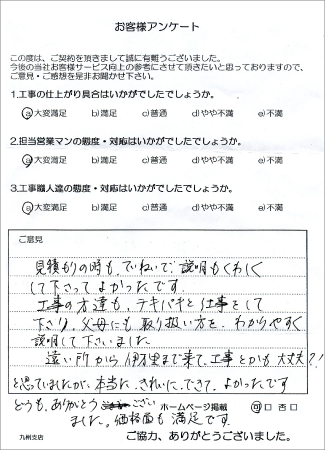 お客様アンケート
この度は、ご契約を頂きまして誠に有難うございました。
今後の当社お客様サービス向上の参考にさせて頂きたいと思っておりますので、
ご意見・ご感想を是非お聞かせ下さい。
1.工事の仕上がり具合はいかがでしたでしょうか。
a)大変満足 b)満足 c)普通 d)やや不満 e)不満
2.担当営業マンの態度・対応はいかがでしたでしょうか。
a)大変満足 b)満足 c)普通 d)やや不満 e)不満
3.工事職人達の態度・対応はいかがでしたでしょうか。
a)大変満足 b)満足 c)普通 d)やや不満 e)不満
ご意見
見積もりの時も、ていねいで説明もくわしく
して下さってよかったです。
工事の方達も、テキパキと仕事をして
下さり、父母にも取り扱い方を、わかりやすく
説明して下さいました
遠い所から伊万里まで来て、工事とかも大丈夫?!
と思っていましたが、本当に、きれいに、できて、よかったです
どうも、ありがとう ござい ホームページ掲載 可 □ 否 □
ました。価格面も満足です。
九州支店 ご協力、ありがとうございました。